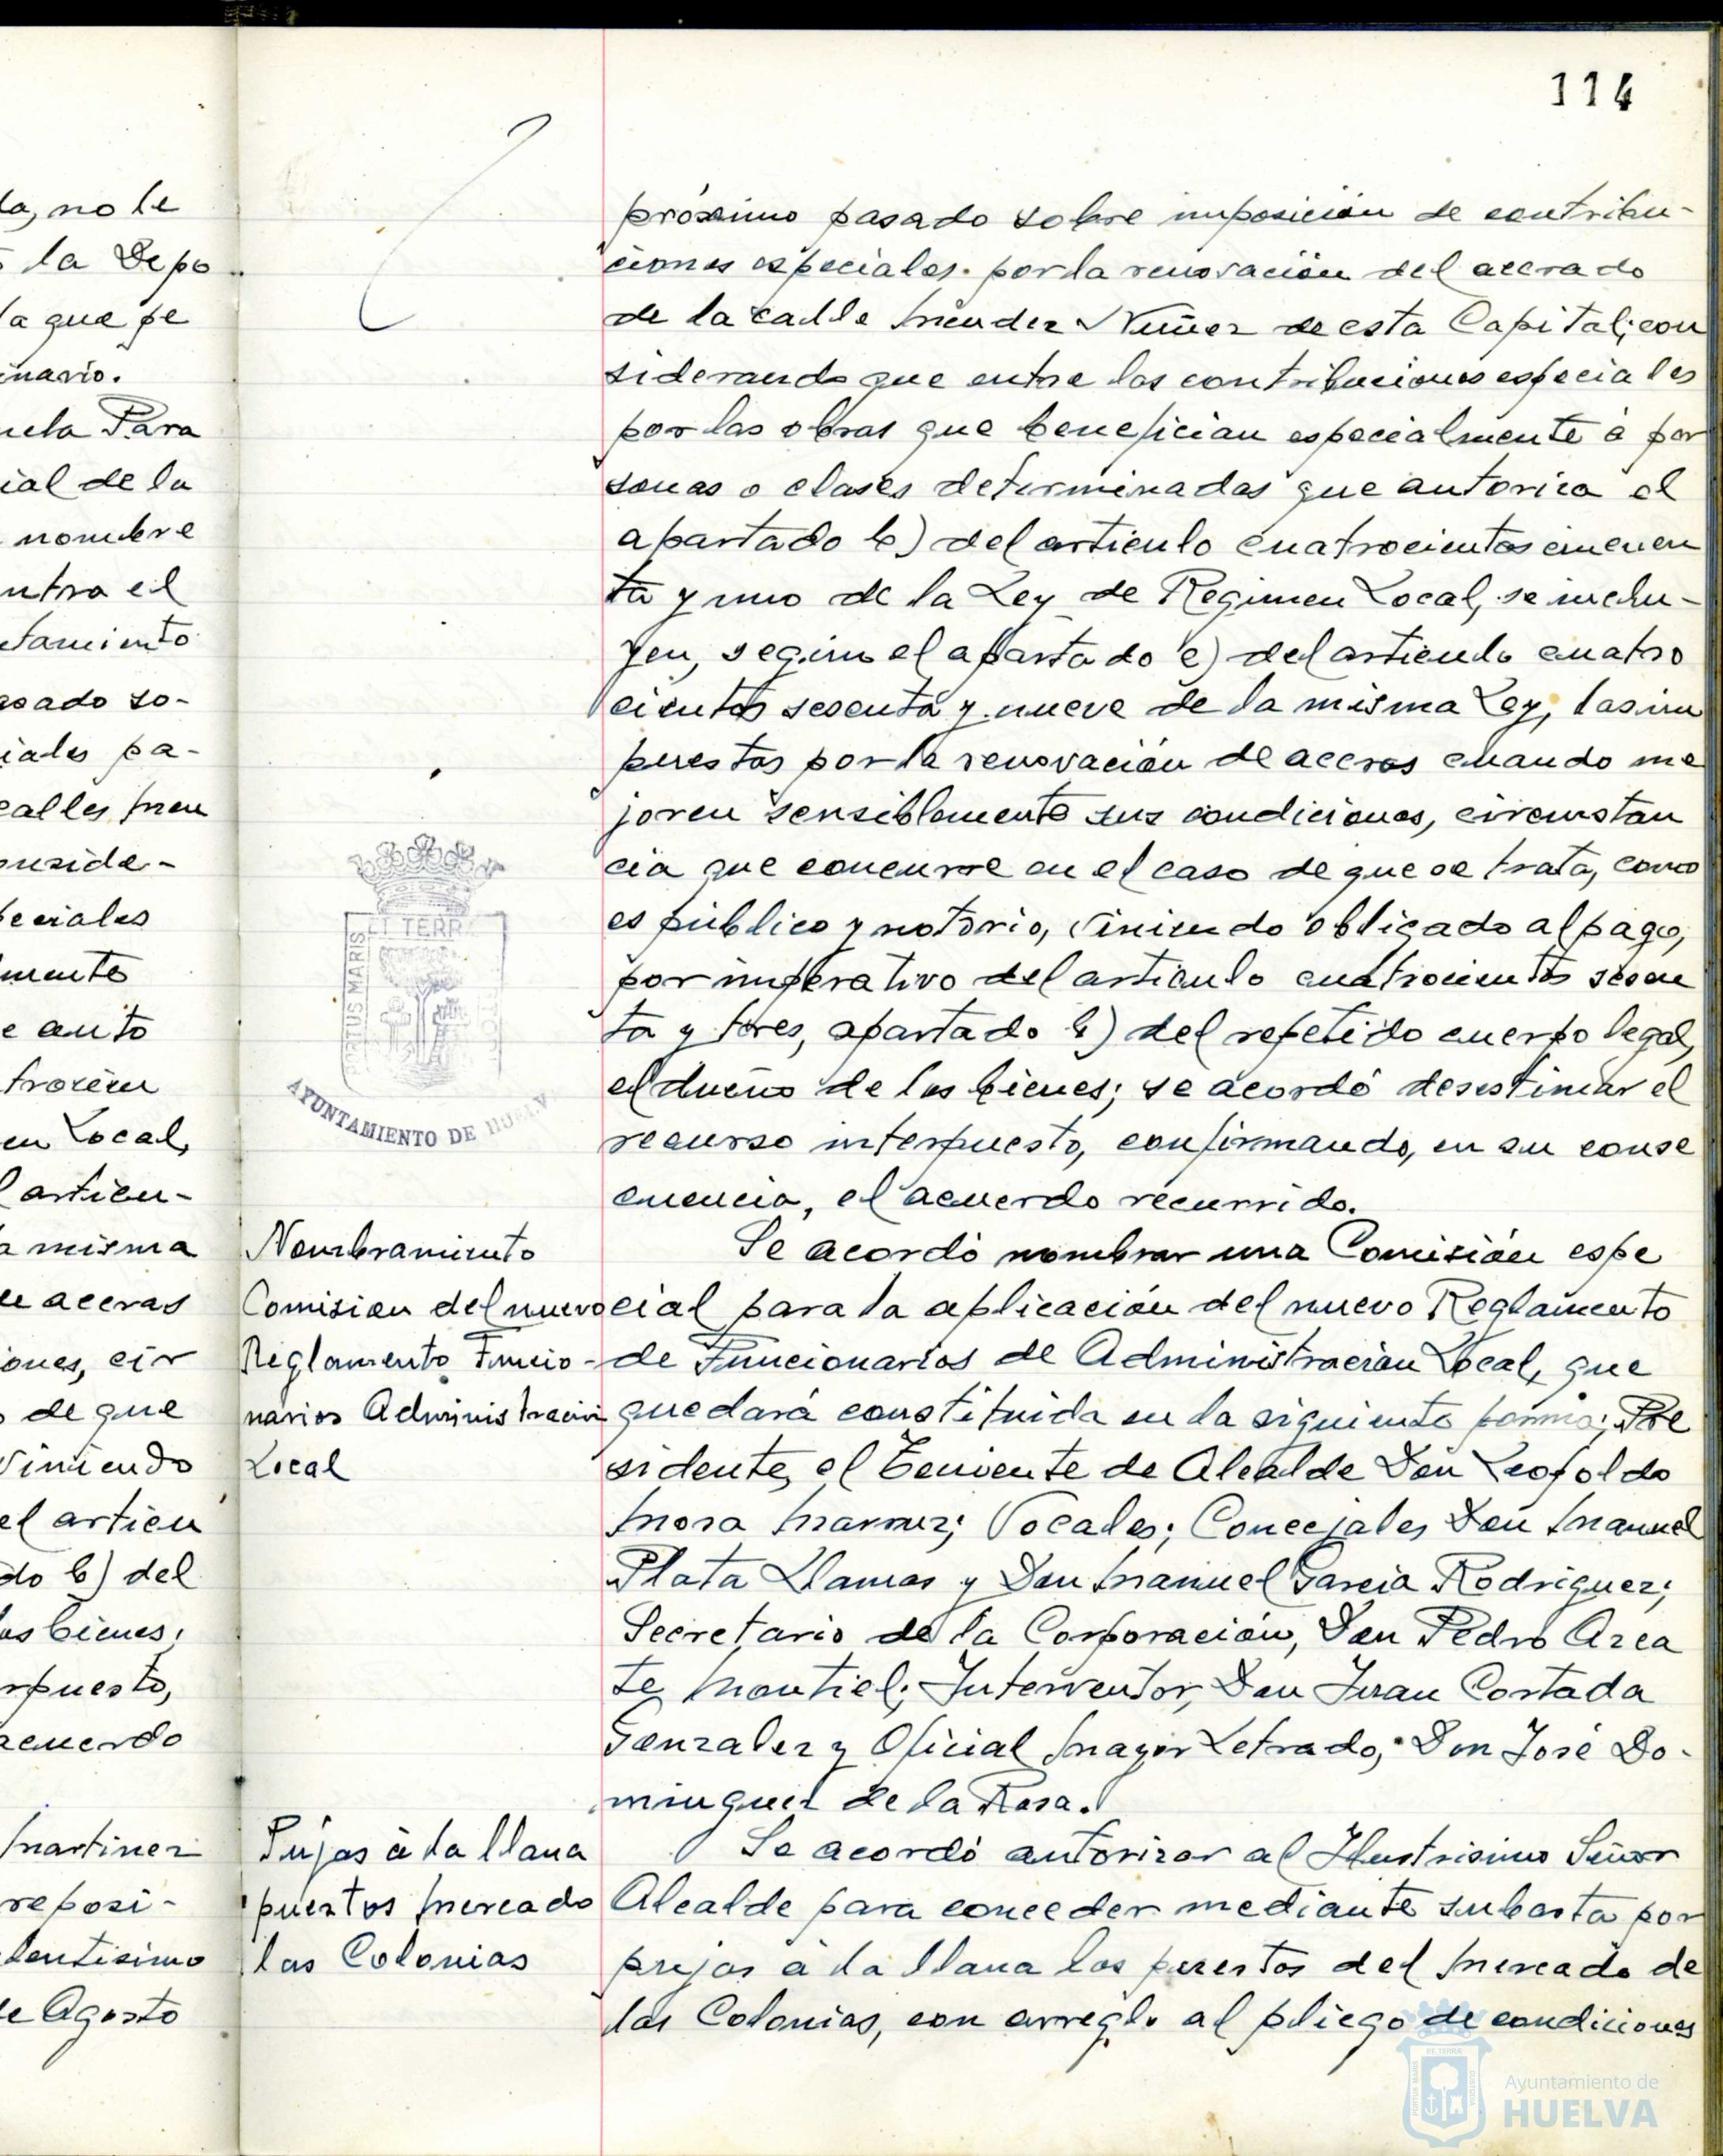 114
da, no le
la Depo
la que se
inario.
uela Para
ial de la
nombre
ntra el
tamiento
asado so-
iales pa-
calles Men
onside-
peciales
mente
e auto
trocien
en Local,
l artícu-
a misma
de aceras
iones, cir
de que
viniendo
el artícu
do b) del
os bienes;
rpuesto,
acuerdo
Martinez
reposi-
lentisimo
de Agosto
próximo pasado sobre imposición de contribu-
ciones especiales por la renovación del acerado
de la calle Mendez Nuñez de esta Capital; con
siderando que entre las contribuciones especiales
por las obras que benefician especialmente á per
sonas o clases determinadas que autoriza el
apartado b) del articulo cuatrocientos cincuen
ta y uno de la Ley de Regimen Local, se inclu-
yen, según el apartado e) del articulo cuatro
cientos sesenta y nueve de la misma Ley, las im
puestas por la renovación de aceras cuando me
joren sensiblemente sus condiciones, circunstan
cia que concurre en el caso de que se trata, como
es público y notorio, viniendo obligado al pago,
por imperativo del articulo cuatrocientos sesen
ta y tres, apartado b) del repetido cuerpo legal,
el dueño de los bienes; se acordó desestimar el
recurso interpuesto, confirmando, en su conse
cuencia, el acuerdo recurrido.
ET TERR
PORTUS MARIS
AYUNTAMIENTO DE HUELV
Nombramiento
Comision del nuevo
Reglamento Funcio-
narios Administración
Local
Se acordó nombrar una Comisión espe
cial para la aplicación del nuevo Reglamento
de Funcionarios de Administración Local, que
quedará constituida en la siguiente forma; Pre
sidente, el Teniente de Alcalde Don Leopoldo
Mora ; Vocales; Concejales Don Manuel
Plata Llamas y Don Manuel Garcia Rodriguez;
Secretario de la Corporación, Don Pedro Arca
te Montiel; Interventor, Don Juan Cortada
Gonzalez y Oficial Mayor Letrado, Don José Do-
minguez de la Rosa.
Pujas á la llana
puestos Mercado
las Colonias
Se acordó autorizar al Ilustrisimo Señor
Alcalde para conceder mediante subasta por
pujas á la llana los puestos del Mercado de
las Colonias, con arreglo al pliego de condiciones
Ayuntamiento de
HUELVA